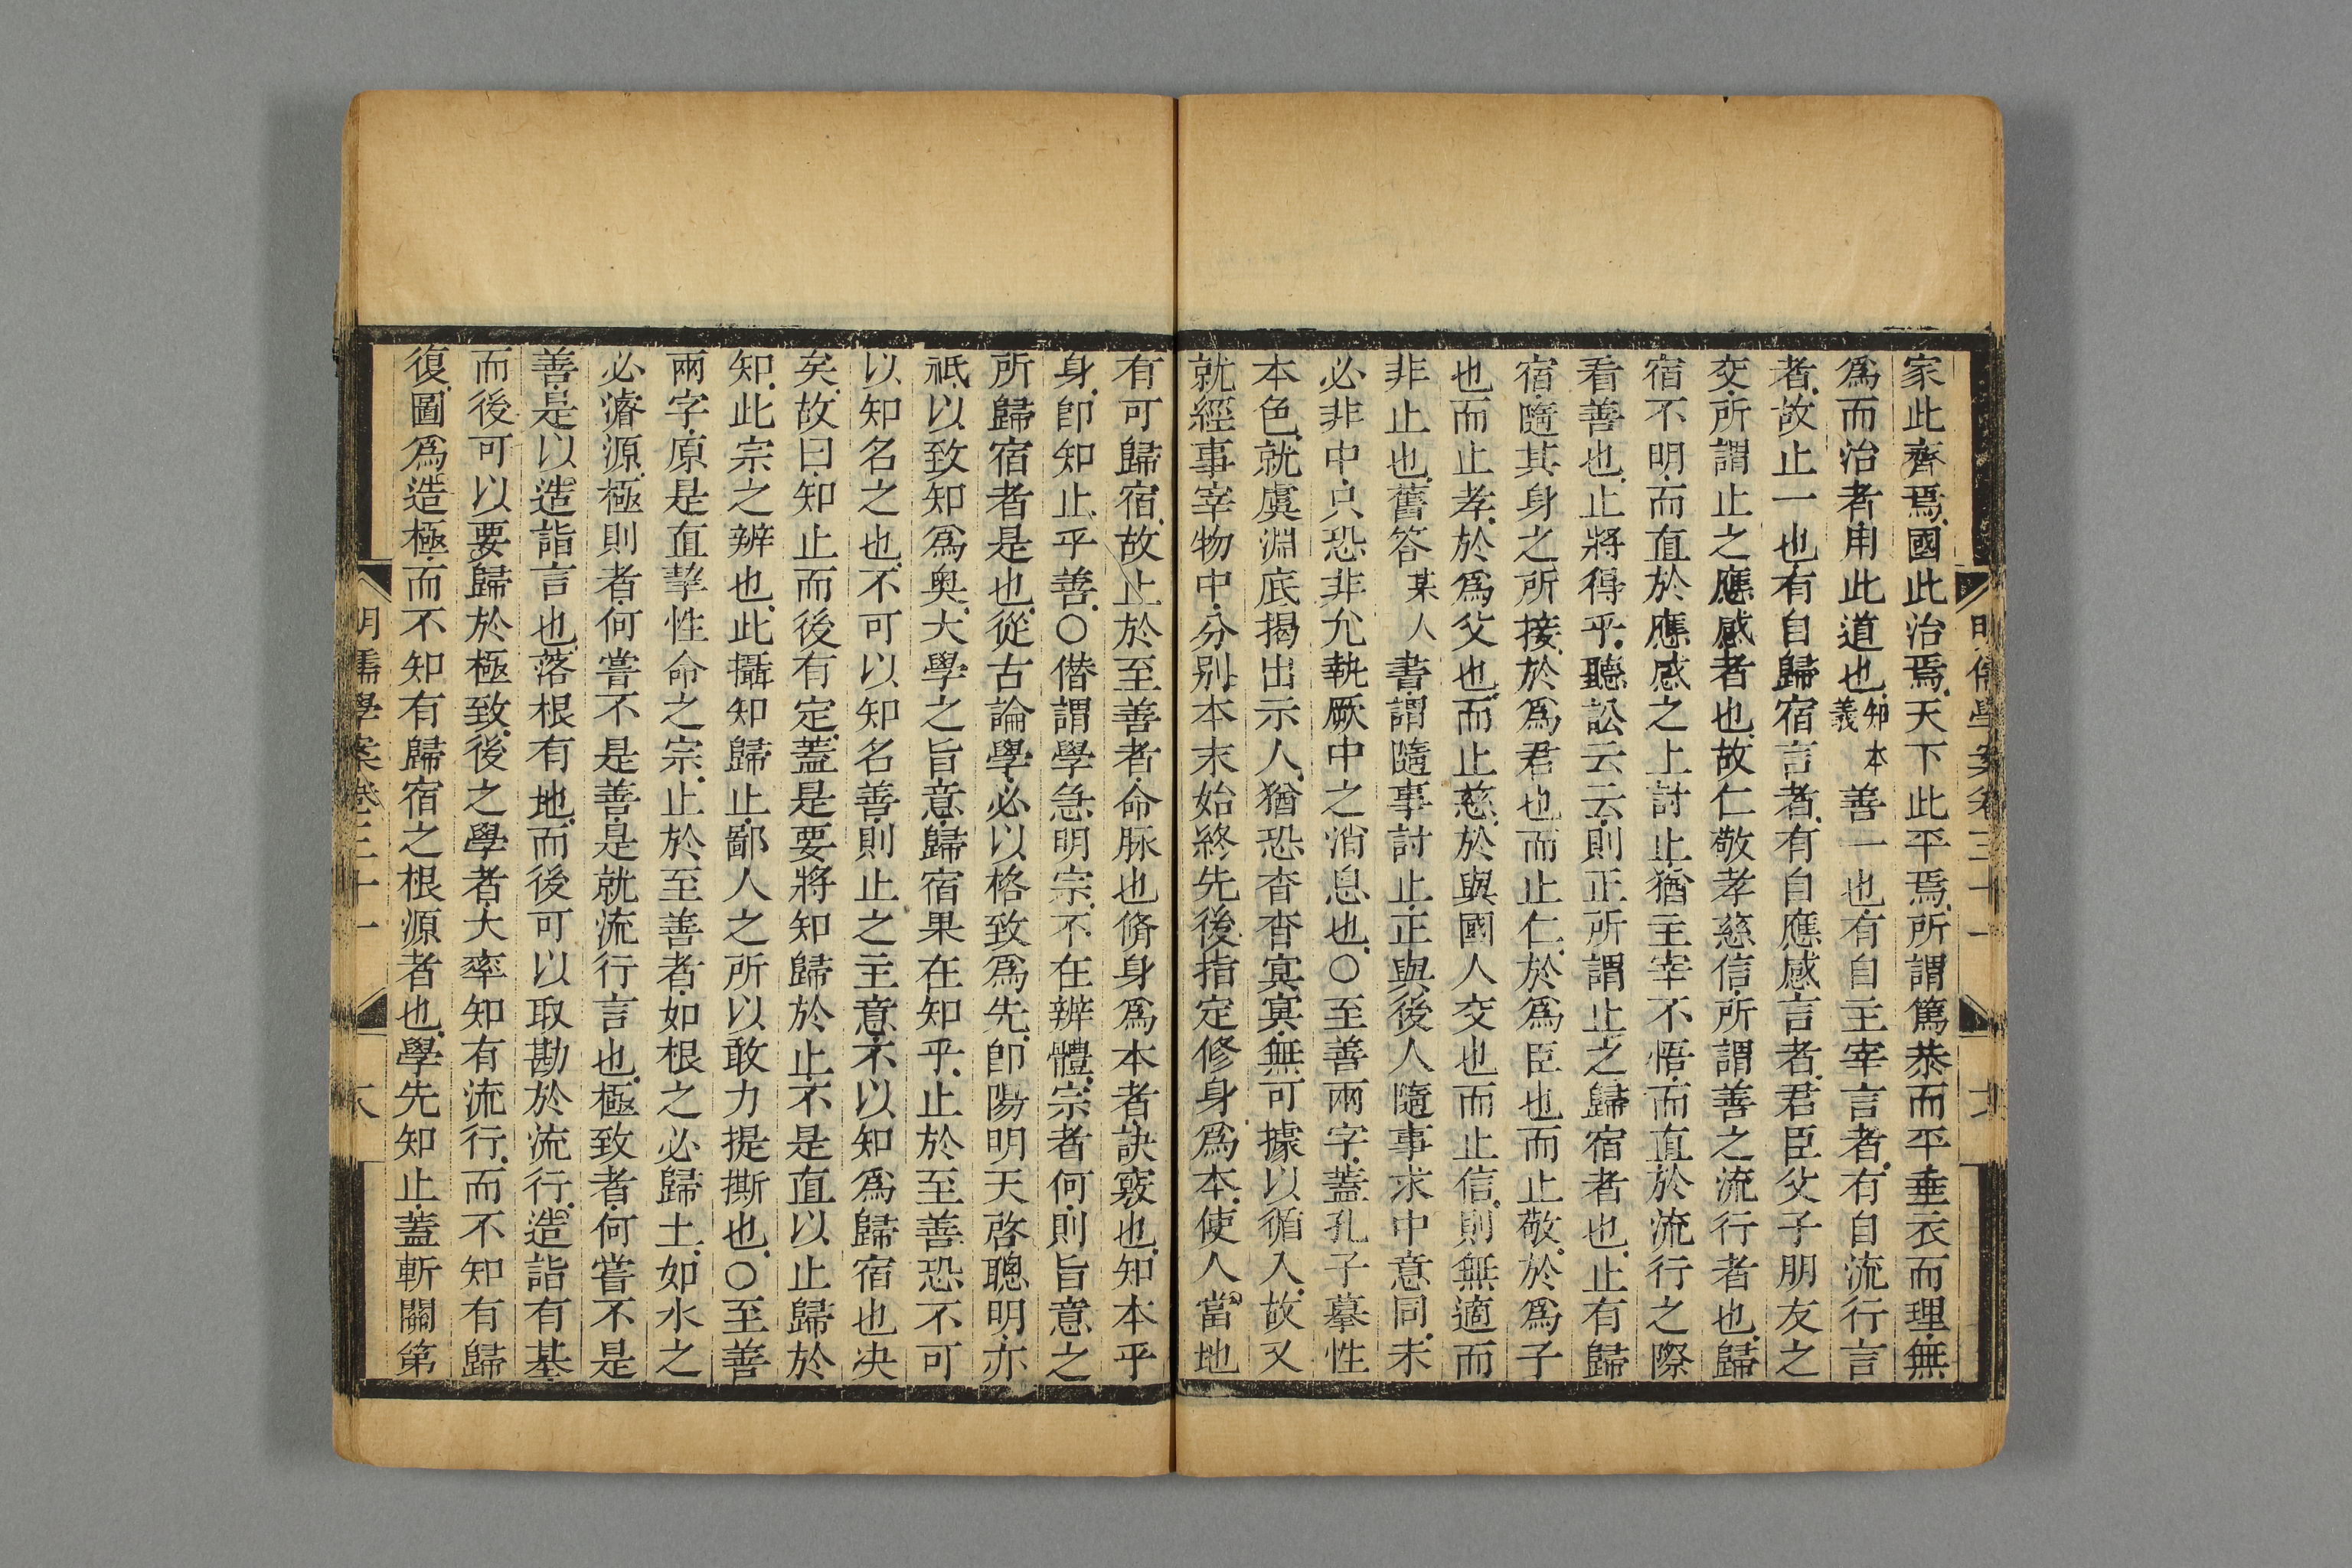 家此齊焉國此治焉天下此平焉所謂篤恭而平垂衣而理無
爲而治者用此道也知本義善一也有自主宰言者有自流行言
者故止一也有自歸宿言者有自應感言者君臣父子朋友之
交所謂止之應感者也故仁敬孝慈信所謂善之流行者也歸
宿不明而直於應感之上討止猶主宰不悟而直於流行之際
看善也止將得乎聽訟云云則正所謂止之歸宿者也止有歸
宿隨其身之所接於爲君也而止仁於爲臣也而止敬於爲子
也而止孝於爲父也而止慈於與國人交也而止信則無適而
非止也舊答某人書謂隨事討止正與後人隨事求中意同未
必非中只恐非允執厥中之消息也○至善兩字蓋孔子摹性
本色就虞淵底揭出示人猶恐杳杳㝠㝠無可據以循入故又
就經事宰物中分别本末始終先後指定修身爲本使人當地
有可歸宿故止於至善者命脉也脩身爲本者訣竅也知本乎
身卽知止乎善○僭謂學急明宗不在辨體宗者何則旨意之
所歸宿者是也從古論學必以格致爲先卽陽明天啓聰明亦
祗以致知爲奥大學之旨意歸宿果在知乎止於至善恐不可
以知名之也不可以知名善則止之主意不以知爲歸宿也决
矣故曰知止而後有定蓋是要將知歸於止不是直以止歸於
知此宗之辨也此攝知歸止鄙人之所以敢力提撕也○至善
兩字原是直挈性命之宗止於至善者如根之必歸土如水之
必濬源極則者何嘗不是善是就流行言也極致者何嘗不是
善是以造詣言也落根有地而後可以取勘於流行造詣有基
而後可以要歸於極致後之學者大率知有流行而不知有歸
復圖爲造極而不知有歸宿之根源者也學先知止蓋斬關第
明儒學案卷三十一